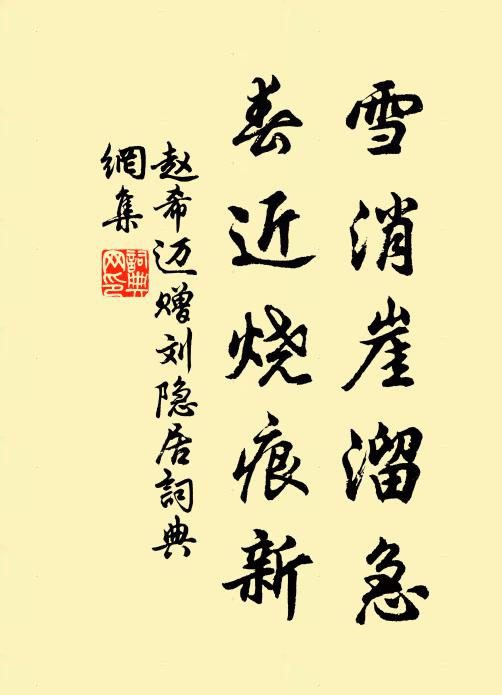 雪消崖溜急
春近烧痕新
赵希迈赠刘隐居詞典
網集
詞典网印